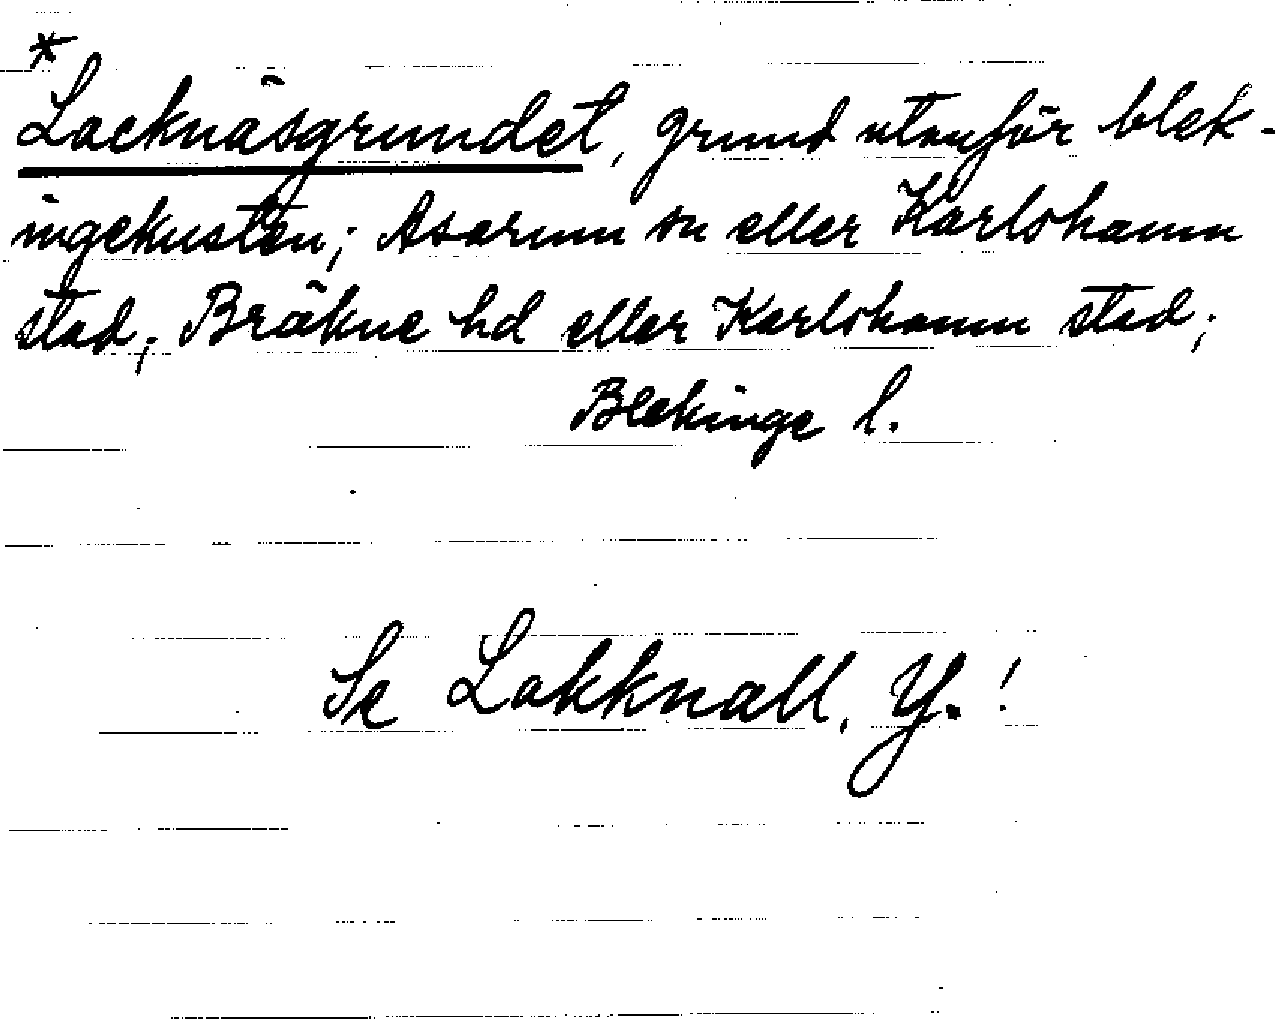 *
Lacknäsgrundet, grund utanför blek-
ingekusten; Asarum sn eller Karlshamn
stad; Bräkne hd eller Karlshamn stad;
Blekinge l.
Se Lakknall, Y.!